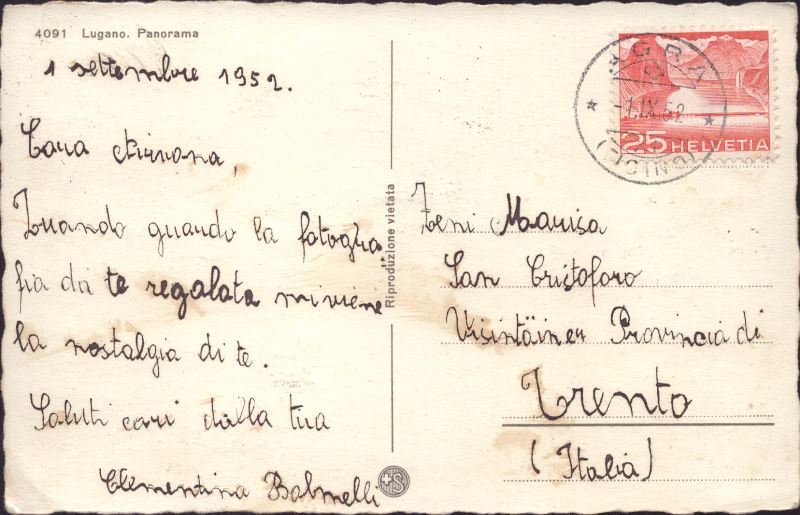 4091 Lugano. Panorama
1 settembre 1952.
Cara
Quando guardo la fotogra
fia da te regalata mi viene
la nostalgia di te.
Saluti cari dalla tua
Clementina Balmelli
Riproduzione vietata
S
AGRA
-1.IX.52
(TICINO)
25 HELVETIA
Marisa
San Cristoforo
Visintäiner Provincia di
Trento
(Italia)